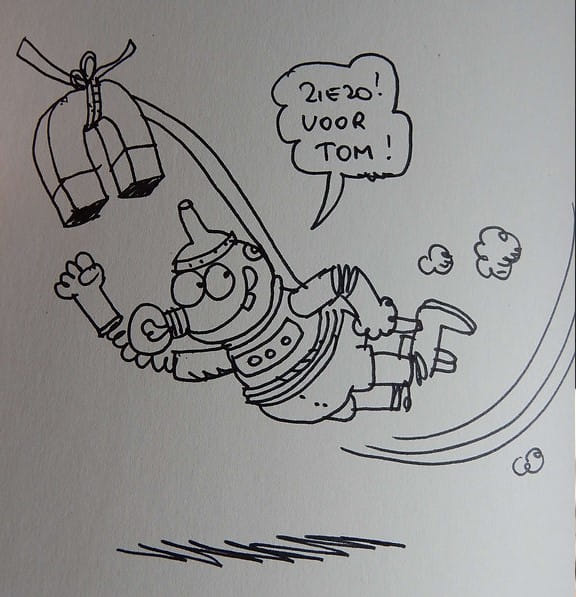 ZIEZO!
VOOR
TOM!